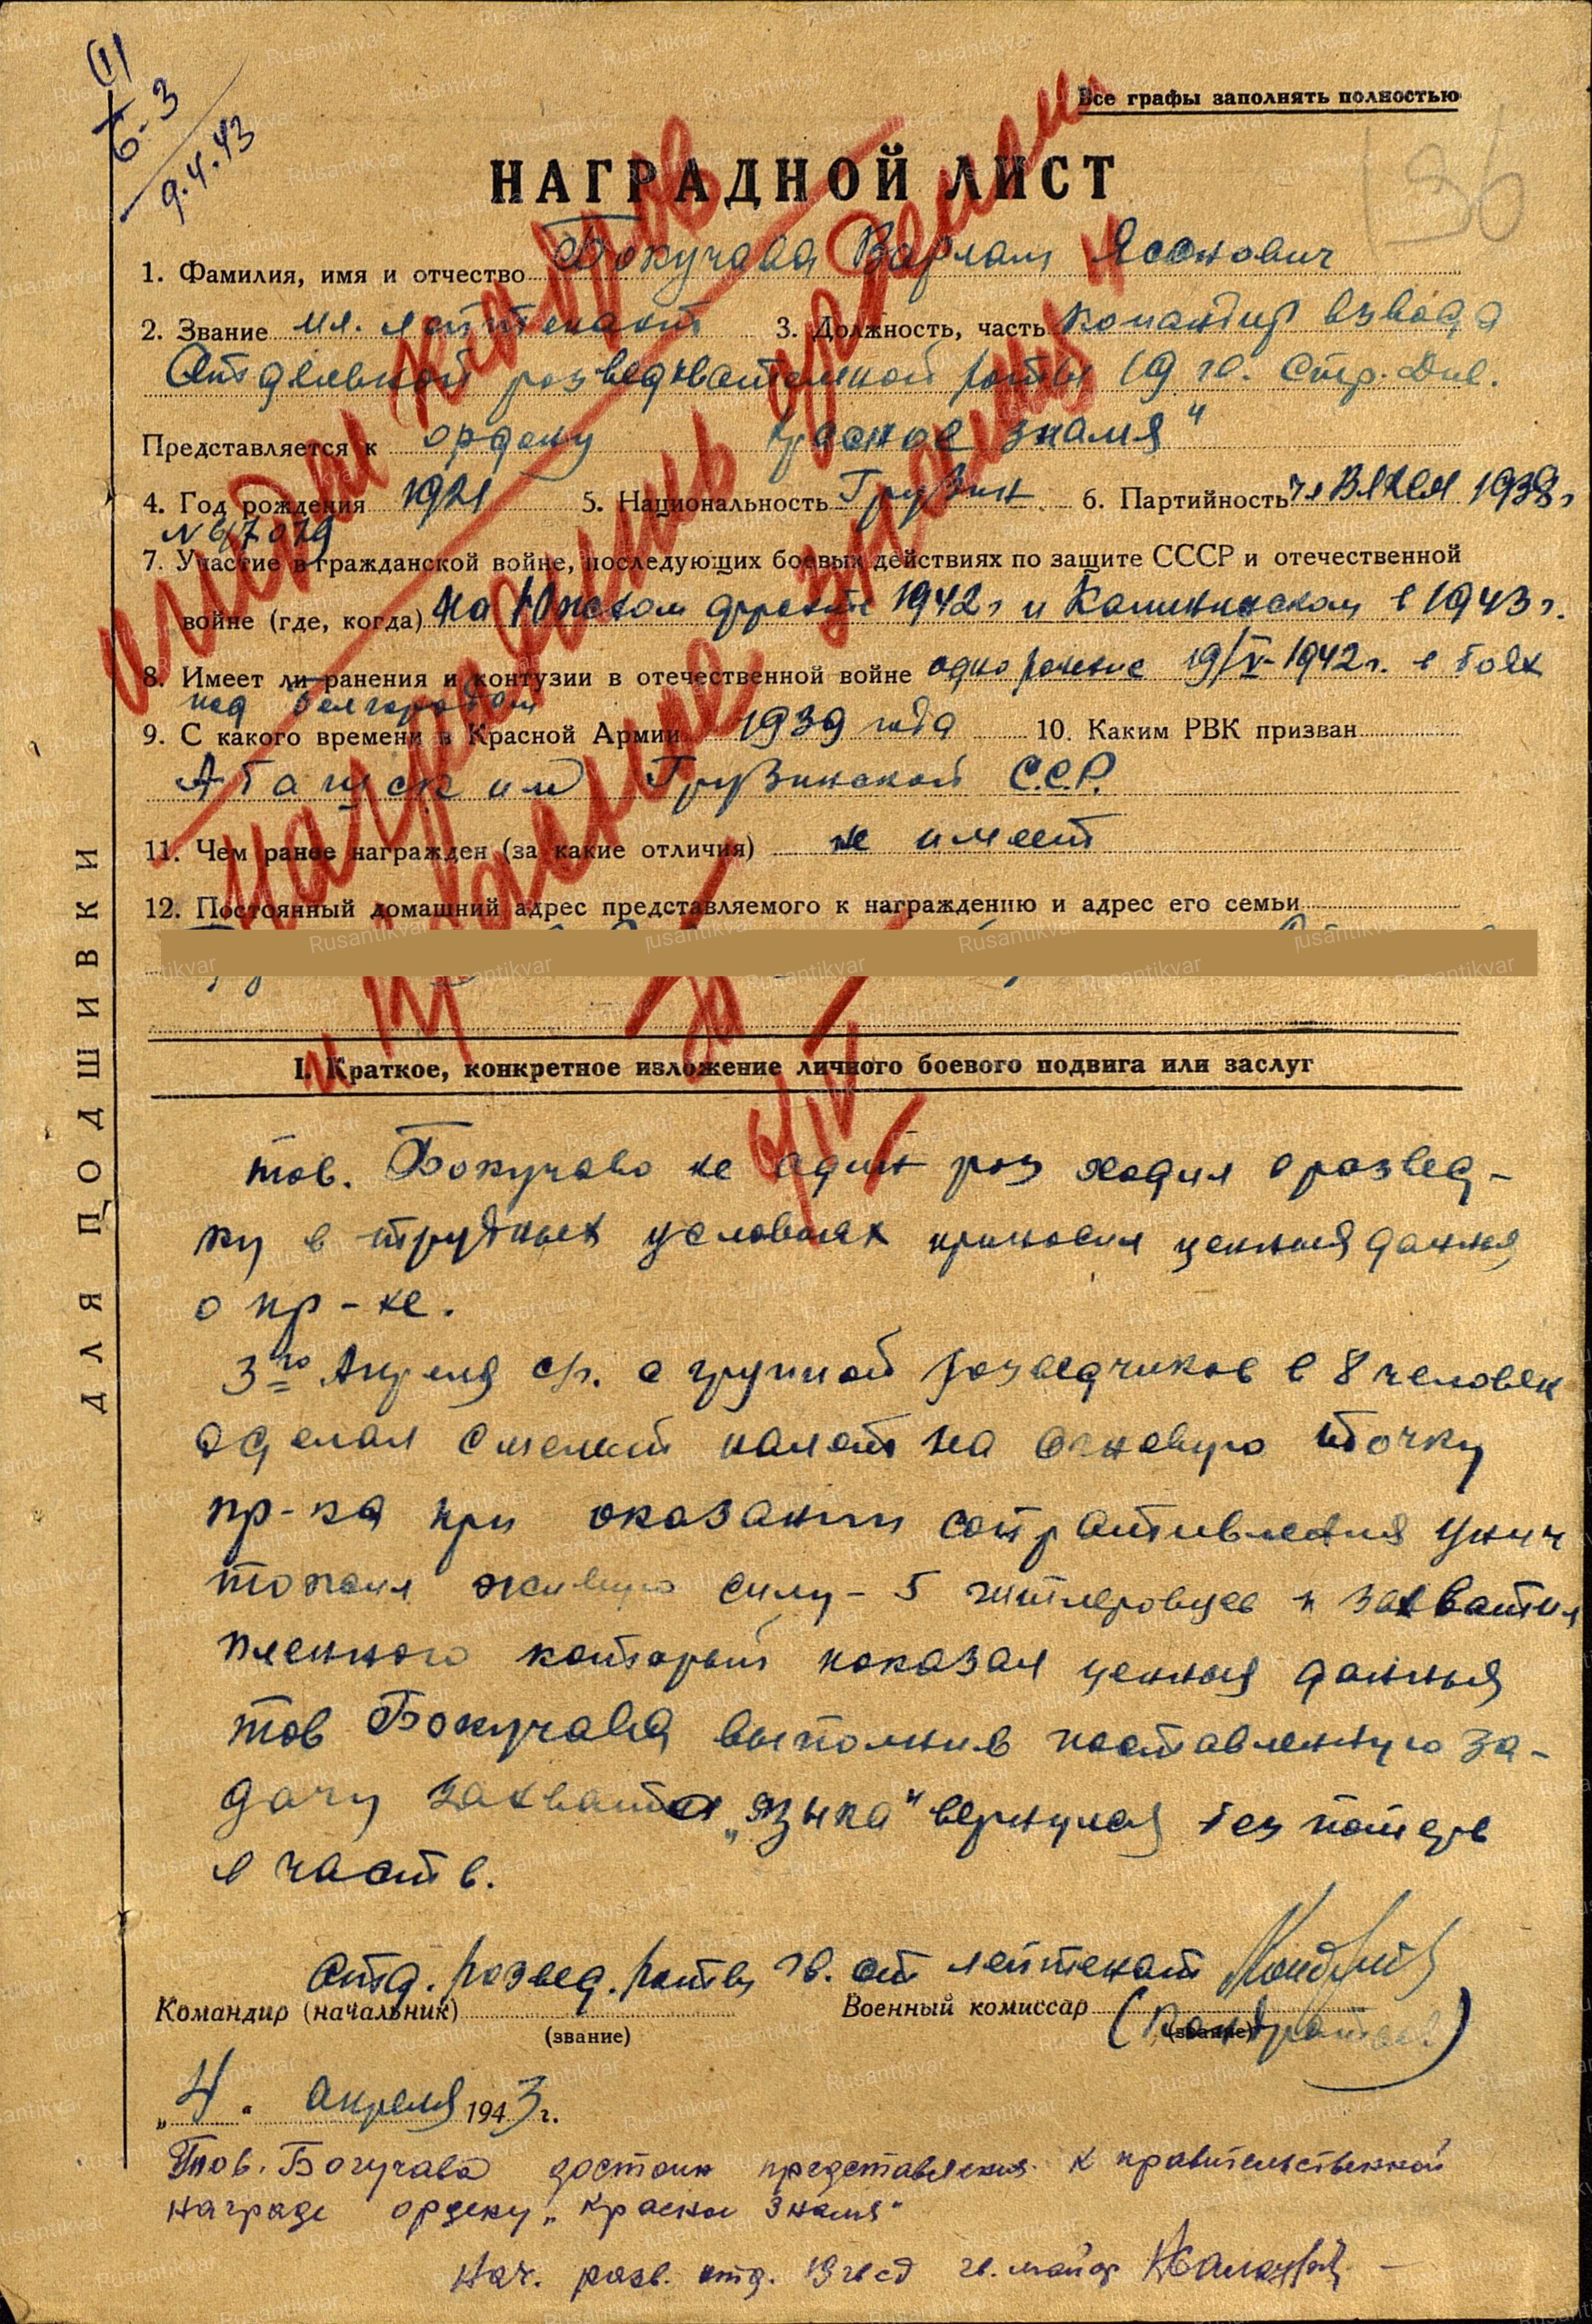 6-3
9.4.43
Все графы заполнять полностью
196
НАГРАДНОЙ ЛИСТ
1. Фамилия, имя и отчество Бокучава Варлам Ясонович
2. Звание мл. лейтенант 3. Должность, часть командир взвода
Отдельной разведывательной роты 19 гв. Стр. Див.
Представляется к ордену „Красное знамя"
4. Год рождения 1921 5. Национальность Грузин 6. Партийность чл ВЛКСМ 1938г
7. Участие в гражданской войне, последующих боевых действиях по защите СССР и отечественной
войне (где, когда) На Южном фронте 1942г и Калининском в 1943г.
8. Имеет ли ранения и контузии в отечественной войне одно ранение 19/V-1942г. в боях
под Белгородом
9. С какого времени в Красной Армии 1939 года 10. Каким РВК призван
Абашским Грузинской С.С.Р.
11. Чем ранее награжден (за какие отличия) не имеет
12. Постоянный домашний адрес представляемого к награждению и адрес его семьи
I. Краткое, конкретное изложение личного боевого подвига или заслуг
тов. Бокучава не один раз ходил в развед-
ку в трудных условиях приносил ценныя данныя
о пр-ке.
3го Апреля с/г. с групой разведчиков в 8 человек
сделал смелый налет на огневую точку
пр-ка при оказании сопративления унич
тожил живую силу - 5 гитлеровцев и захватил
пленного который показал ценныя данныя
тов Бокучава выполнив поставленную за-
дачу захвата „языка" вернулся без потерь
в часть.
Отд. развед. роты гв. ст лейтенант
Командир (начальник) Военный комиссар
(звание) (звание)
(Кондратьев)
„4" апреля 1943г.
Тов. Богучава достоин представления к правительственной
награде ордену „Красное Знамя"
Нач. разв. отд. 19 гвсд гв. майор
ДЛЯ ПОДШИВКИ
наградить орденом
Красное знамя
Rusantikvar